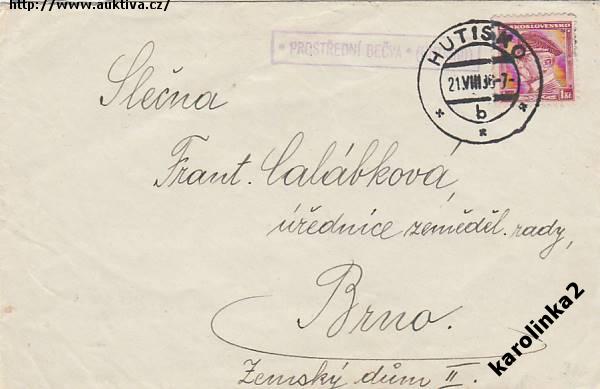 http://www.auktiva.cz/
• PROSTŘEDNÍ BEČVA •
HUTISKO
21.VIII.36-7-
* b *
*
ČESKOSLOVENSKO
1Kč
Slečna
Frant. Calábková,
úřednice zeměděl. rady,
Brno.
Zemský dům II.
karolinka2